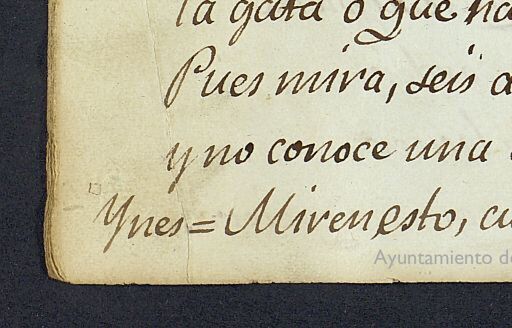 la gata o que ha
Pues mira, seis a
y no conoce una
Ynes = Miren esto, cu
Ayuntamiento de